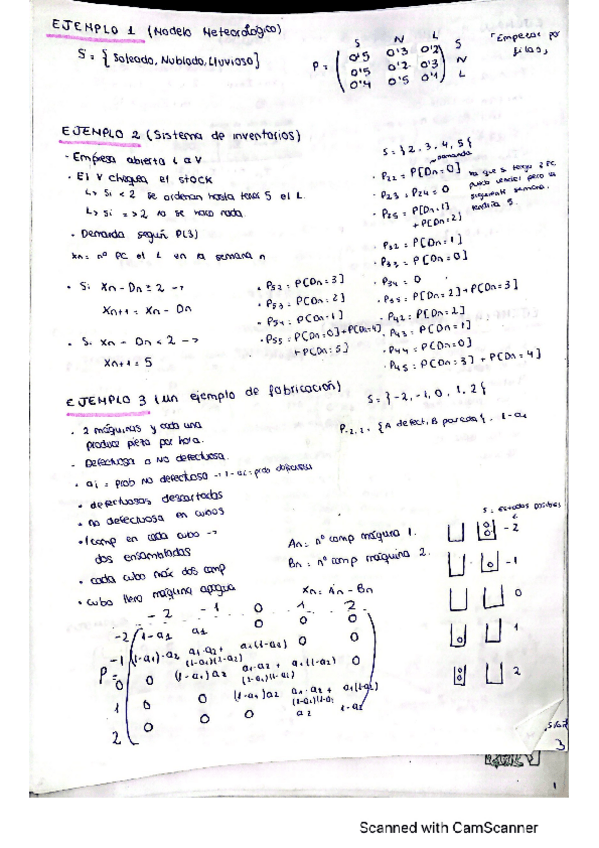 EJEMPLO 1 (Modelo Meteorológico)
S = { Soleado, Nublado, Lluvioso}
S N L
P = ( 0'5 0'3 0'2 ) S
0'5 0'2 0'3 N
0'4 0'5 0'1 L
"Empezar por filas"
EJEMPLO 2 (Sistema de inventarios)
· Empresa abierta L a V
· El V chequea el stock
↳ Si < 2 se ordenan hasta tener 5 el L.
↳ Si => 2 no se hace nada.
· Demanda según P(3)
Xn = nº PC el L en la semana n
· Si Xn - Dn ≥ 2 →
Xn+1 = Xn - Dn
· Si Xn - Dn < 2 →
Xn+1 = 5
S = {2, 3, 4, 5}
demanda
· P22 = P[Dn = 0]
· P23, P24 = 0
· P25 = P[Dn = 1]
+ P[Dn = 2]
ya que si tengo 2 PC
puedo vender pero la
siguiente semana
tendría 5.
· P32 = P[Dn = 1]
· P33 = P[Dn = 0]
· P34 = 0
· P35 = P[Dn = 2] + P[Dn = 3]
· P42 = P[Dn = 2]
· P43 = P[Dn = 1]
· P44 = P[Dn = 0]
· P45 = P[Dn = 3] + P[Dn = 4]
· P52 = P[Dn = 3]
· P53 = P[Dn = 2]
· P54 = P[Dn = 1]
· P55 = P[Dn = 0] + P[Dn = 4]
+ P[Dn = 5]
EJEMPLO 3 (un ejemplo de fabricación)
· 2 máquinas y cada una
produce pieza por hora.
- Defectuosa o NO defectuosa.
· ai = prob NO defectuosa → 1 - ai = prob defectuosa
· defectuosas descartadas
· no defectuosa en cubos
· 1 comp en cada cubo →
dos ensambladas
· cada cubo máx dos comp
· cubo lleno máquina apagada
S = {-2, -1, 0, 1, 2}
P-2,-2 = {A defect, B parada} = 1-a1
An = nº comp máquina 1.
Bn = nº comp máquina 2.
Xn = An - Bn
S = estados posibles
-2
-1
0
1
2
-2 -1 0 1 2
-2 1-a1 a1 0 0 0
-1 (1-a1)·a2 a1·a2 + (1-a1)(1-a2) a1(1-a2) 0 0
P = 0 0 (1-a1)a2 a1·a2 + (1-a1)(1-a2) a1(1-a2) 0
1 0 0 (1-a1)a2 a1·a2 + (1-a1)(1-a2) a1(1-a2)
2 0 0 0 a2 1-a2
3
1
Scanned with CamScanner